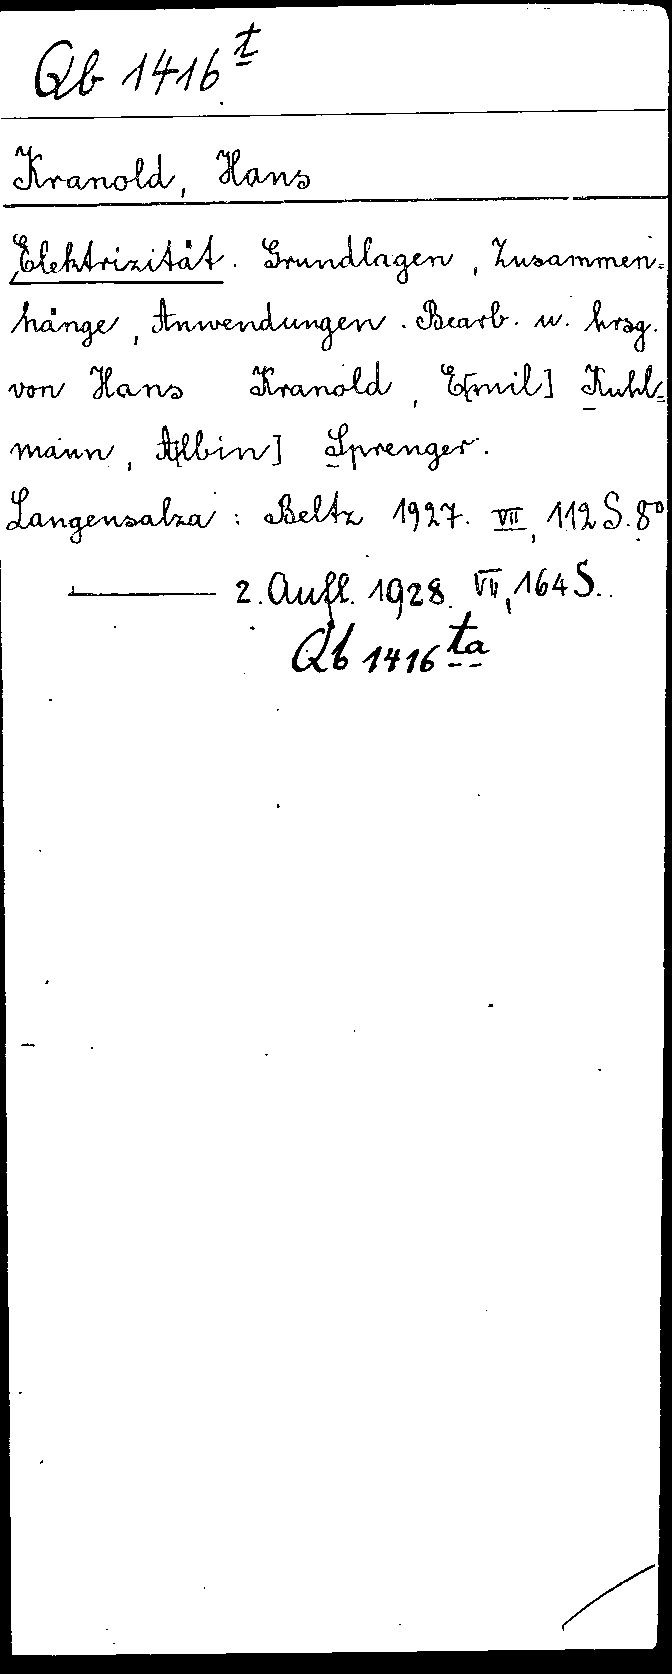 Qb 1416 t
Kranold, Hans
Elektrizität. Grundlagen, Zusammen=
hänge, Anwendungen. Bearb. u. hrsg.
von Hans Kranold, E[mil] Kuhl=
mann, A[lbin] Sprenger.
Langensalza: Beltz 1927. VII, 112 S. 8°
——— 2. Aufl. 1928. VII, 164 S.
Qb 1416 ta